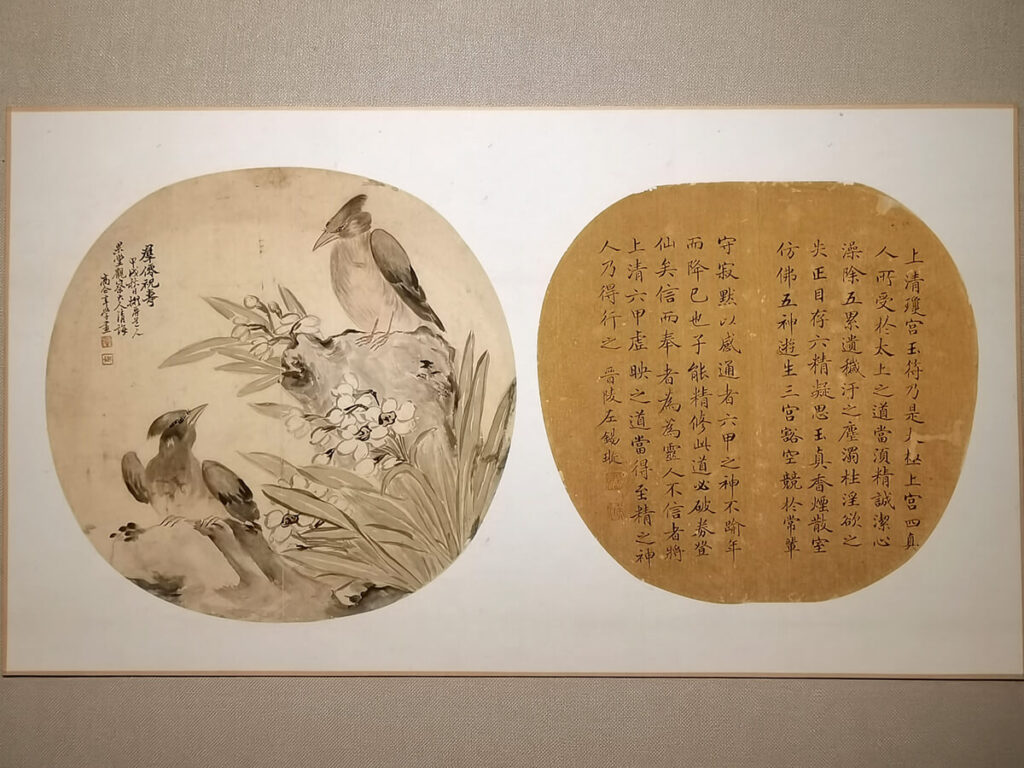 上清瓊宮玉符乃是太極上宮四真
人所受於太上之道當須精誠潔心
澡除五累遺穢汙之塵濁杜淫欲之
失正目存六精凝思玉真香煙散室
仿佛五神逰生三宮豁空競於常輩
守寂默以感通者六甲之神不踰年
而降已也子能精修此道必破券登
仙矣信而奉者為為靈人不信者將
上清六甲虛映之道當得至精之神
人乃得行之 晉陵左錫璇
羣僊祝壽
甲戌
觀察大人清誨
畫